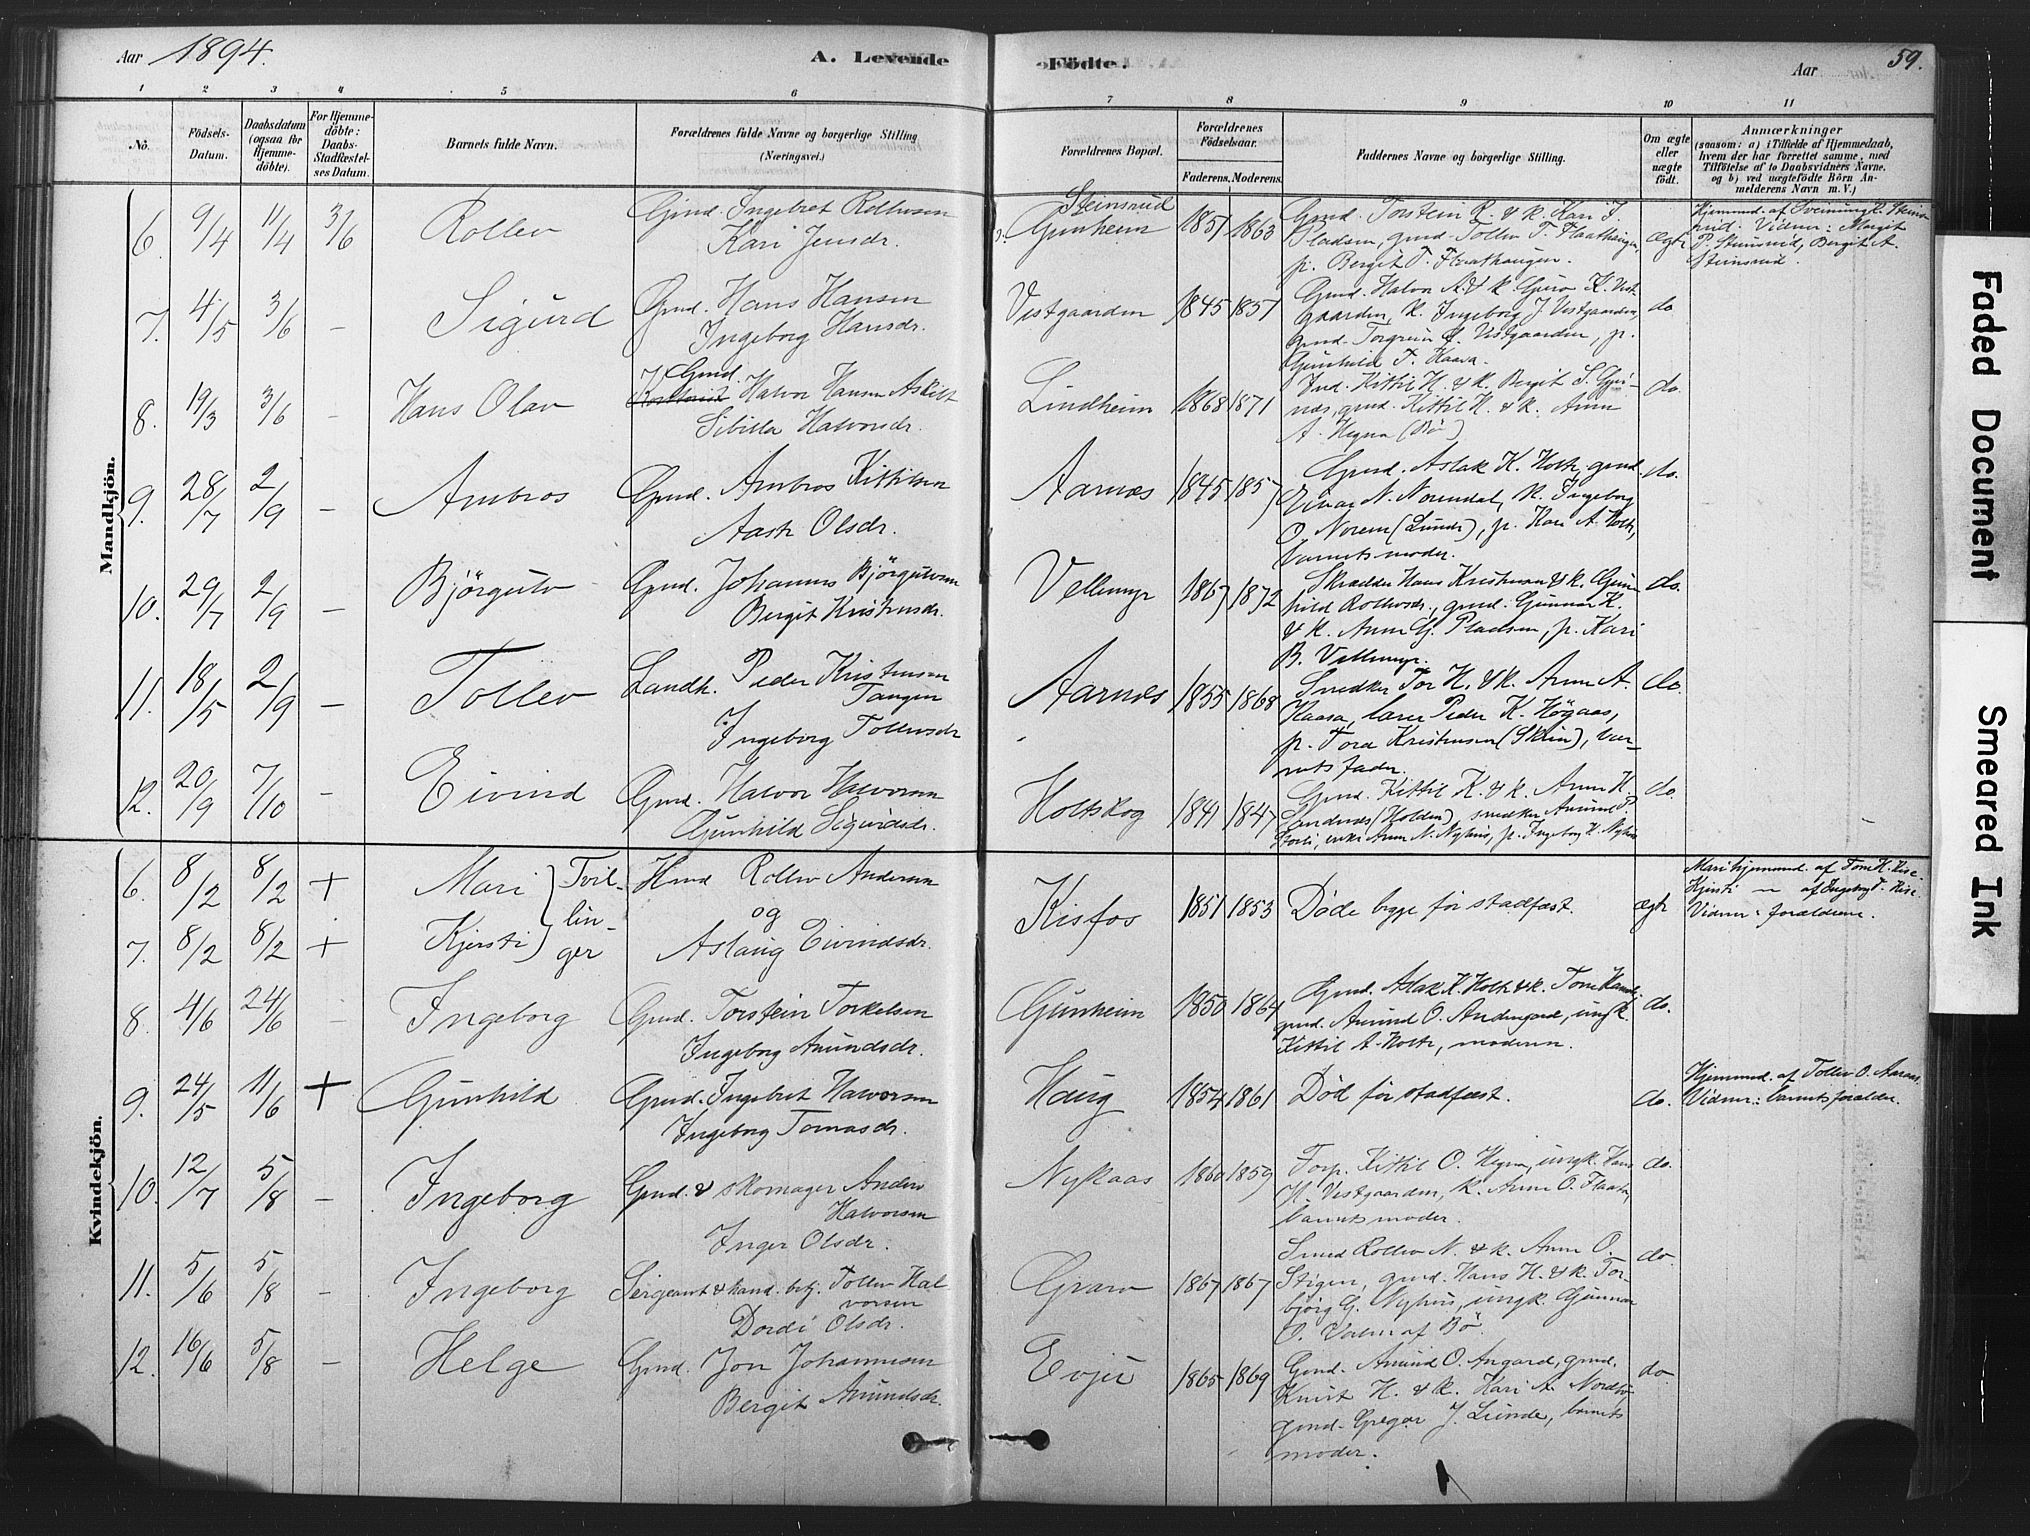 Aar 1894.
A. Levende
Födte.
Aar
59.
1 2 3 4 5 6 7 8 9 10 11
No.
Födsels-Datum.
Daabsdatum (ogsaa for Hjemmedöbte).
For Hjemmedöbte: Daabs-Stadfæstelses Datum.
Barnets fulde Navn.
Forældrenes fulde Navne og borgerlige Stilling.
(Næringsvei.)
Forældrenes Bopæl.
Forældrenes Födselsaar.
Faderens. Moderens.
Faddernes Navne og borgerlige Stilling.
Om ægte eller uægte födt.
Anmærkninger
(saasom: a) i Tilfælde af Hjemmedaab,
hvem der har forrettet samme, med
Tilföielse af to Daabsvidners Navne.
og b) ved uægtefödte Börn An-
melderens Navn m. V.)
Mandkjön.
6. 9/4 11/4 3/6 Rollev
Gmd. Ingebret Rollevsen
Kari Jensdr.
Steinsrud
Gunheim 1857 1863
Gmd. Torstein R. & k. Kari J.
Pladsen, gmd. Tollev T. Flaathaugen,
p. Berget T. Flaathaugen.
ægte
Hjemmd. af Sveinung K. Steins-
rud. Vidner: Margit
P. Steinsrud, Bergit A.
Steinsrud.
7. 4/5 3/6 – Sigurd
Gmd. Hans Hansen
Ingeborg Hansdr.
Vestgaarden 1845 1857
Gmd. Halvor A. & k. Guro K. Vest-
gaarden, k. Ingeborg J. Vestgaarden,
gmd. Torgrim Vestgaarden, p.
Gunhild T. Haava.
do.
8. 19/3 3/6 – Hans Olav
Gmd.
Halvor Hansen Askilt
Sibilla Halvorsdr.
Lindheim 1868 1871
Ind. Kittil H. & k. Bergit S. Gri-
næs, gmd. Kittil H. & k. Anne
A. Hegna (Bø)
do.
9. 28/7 2/9 – Ambros
Gmd. Ambros Kittilsen
Aaste Olsdr.
Aarnæs 1845 1857
Gmd. Aslak K. Holte, gmd.
Einar N. Norendal, k. Ingeborg
O. Norem (Lunde), p. Kari A. Holte,
barnets moder.
do.
10. 29/7 2/9 – Björgulv
Gmd. Johannes Björgulvsen
Bergit Kristensdr.
Vellemyr 1867 1872
Skrædder Hans Kristensen & k. Gun-
hild Rollevsdr., gmd. Gunnar K.
& k. Anne G. Pladsen, p. Kari
B. Vellemyr.
do.
11. 18/5 2/9 – Tollev
Landh. Peder Kristensen
Tangen
Ingeborg Tollevsdr.
Aarnæs 1855 1868
Smedker Tor H. & k. Anne A.
Haasa, lærer Peder K. Høgaas,
p. Tora Kristensen (Skien), bar-
nets fader.
do.
12. 20/9 7/10 – Eivind
Gmd. Halvor Halvorsen
Gunhild Sigurdsdr.
Holtskog 1841 1847
Gmd. Kittil K. & k. Anne H.
Sandenæs (Holden), snedker Amund P.
enke Anne N. Nyhus, p. Ingeborg H. Nyhus
do.
Kvindekjön.
6. 8/2 8/2 + Mari } Tvil-
lin-
Hmd Rollev Andersen
og
Kisfos 1851 1853 Døde begge før stadfæst. ægte
Mari hjemmd. af Tone K. Kise.
Kjersti – af Ingeborg T. Kise.
Vidner: forældrene.
7. 8/2 8/2 + Kjersti } ger
Aslaug Eivindsdr.
8. 4/6 24/6 – Ingeborg
Gmd. Torstein Torkelsen
Ingeborg Amundsdr.
Gunheim 1850 1864
Gmd. Aslak K. Holte & k. Tone
gmd. Amund O. Andengaard, ungk.
Kittil A. Holte, moderen.
do.
9. 24/5 11/6 + Gunhild
Gmd. Ingebret Halvorsen
Ingeborg Tomasdr.
Haug 1854 1861 Død før stadfæst. do.
Hjemmd. af Tollev O. Aaraas.
Vidner: barnets forældre.
10. 12/7 5/8 – Ingeborg
Gmd. & skomager Anders
Halvorsen
Inger Olsdr.
Nykaas 1860 1859
Torp. Kittil O. Hegna, ungk. Hans
H. Vestgaarden, k. Anne O. Flaata,
barnets moder.
do.
11. 5/6 5/8 – Ingeborg
Sergeant & hand. betj. Tollev Hal-
vorsen
Dordi Olsdr.
Grava 1867 1867
Smed Rollev N. & k. Anne O.
Stigen, gmd. Hans H. & k. Tor-
bjørg G. Nyhus, ungk. Gunnar
O. Valen af Bø.
do.
12. 16/6 5/8 – Helge
Gmd. Jon Johannesen
Bergit Amundsdr.
Evju 1865 1869
Gmd. Amund O. Angard, gmd.
Knut H. & k. Kari A. Nordbø,
gmd. Gregar J. Lunde, barnets
moder.
do.
Faded Document
Smeared Ink